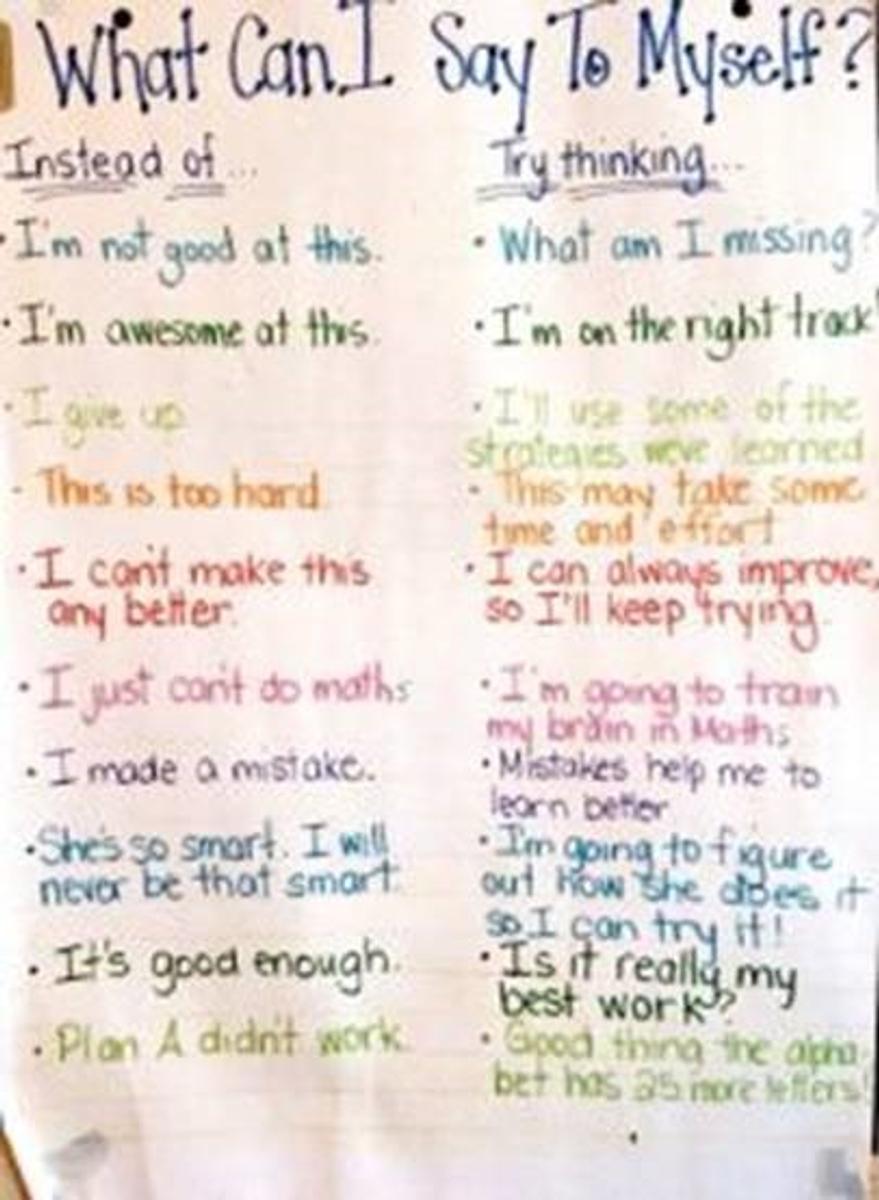 What Can I Say To Myself?
Instead of...
Try thinking...
• I'm not good at this.
• What am I missing?
• I'm awesome at this.
• I'm on the right track!
• I give up
• I'll use some of the
strategies weve learned
• This is too hard.
• This may take some
time and effort
• I can't make this
any better.
• I can always improve,
so I'll keep trying.
• I just can't do maths
• I'm going to train
my brain in Maths
• I made a mistake.
• Mistakes help me to
learn better
• She's so smart. I will
never be that smart.
• I'm going to figure
out how she does it
so I can try it!
• It's good enough.
• Is it really my
best work?
• Plan A didn't work.
• Good thing the alpha
bet has 25 more letters!